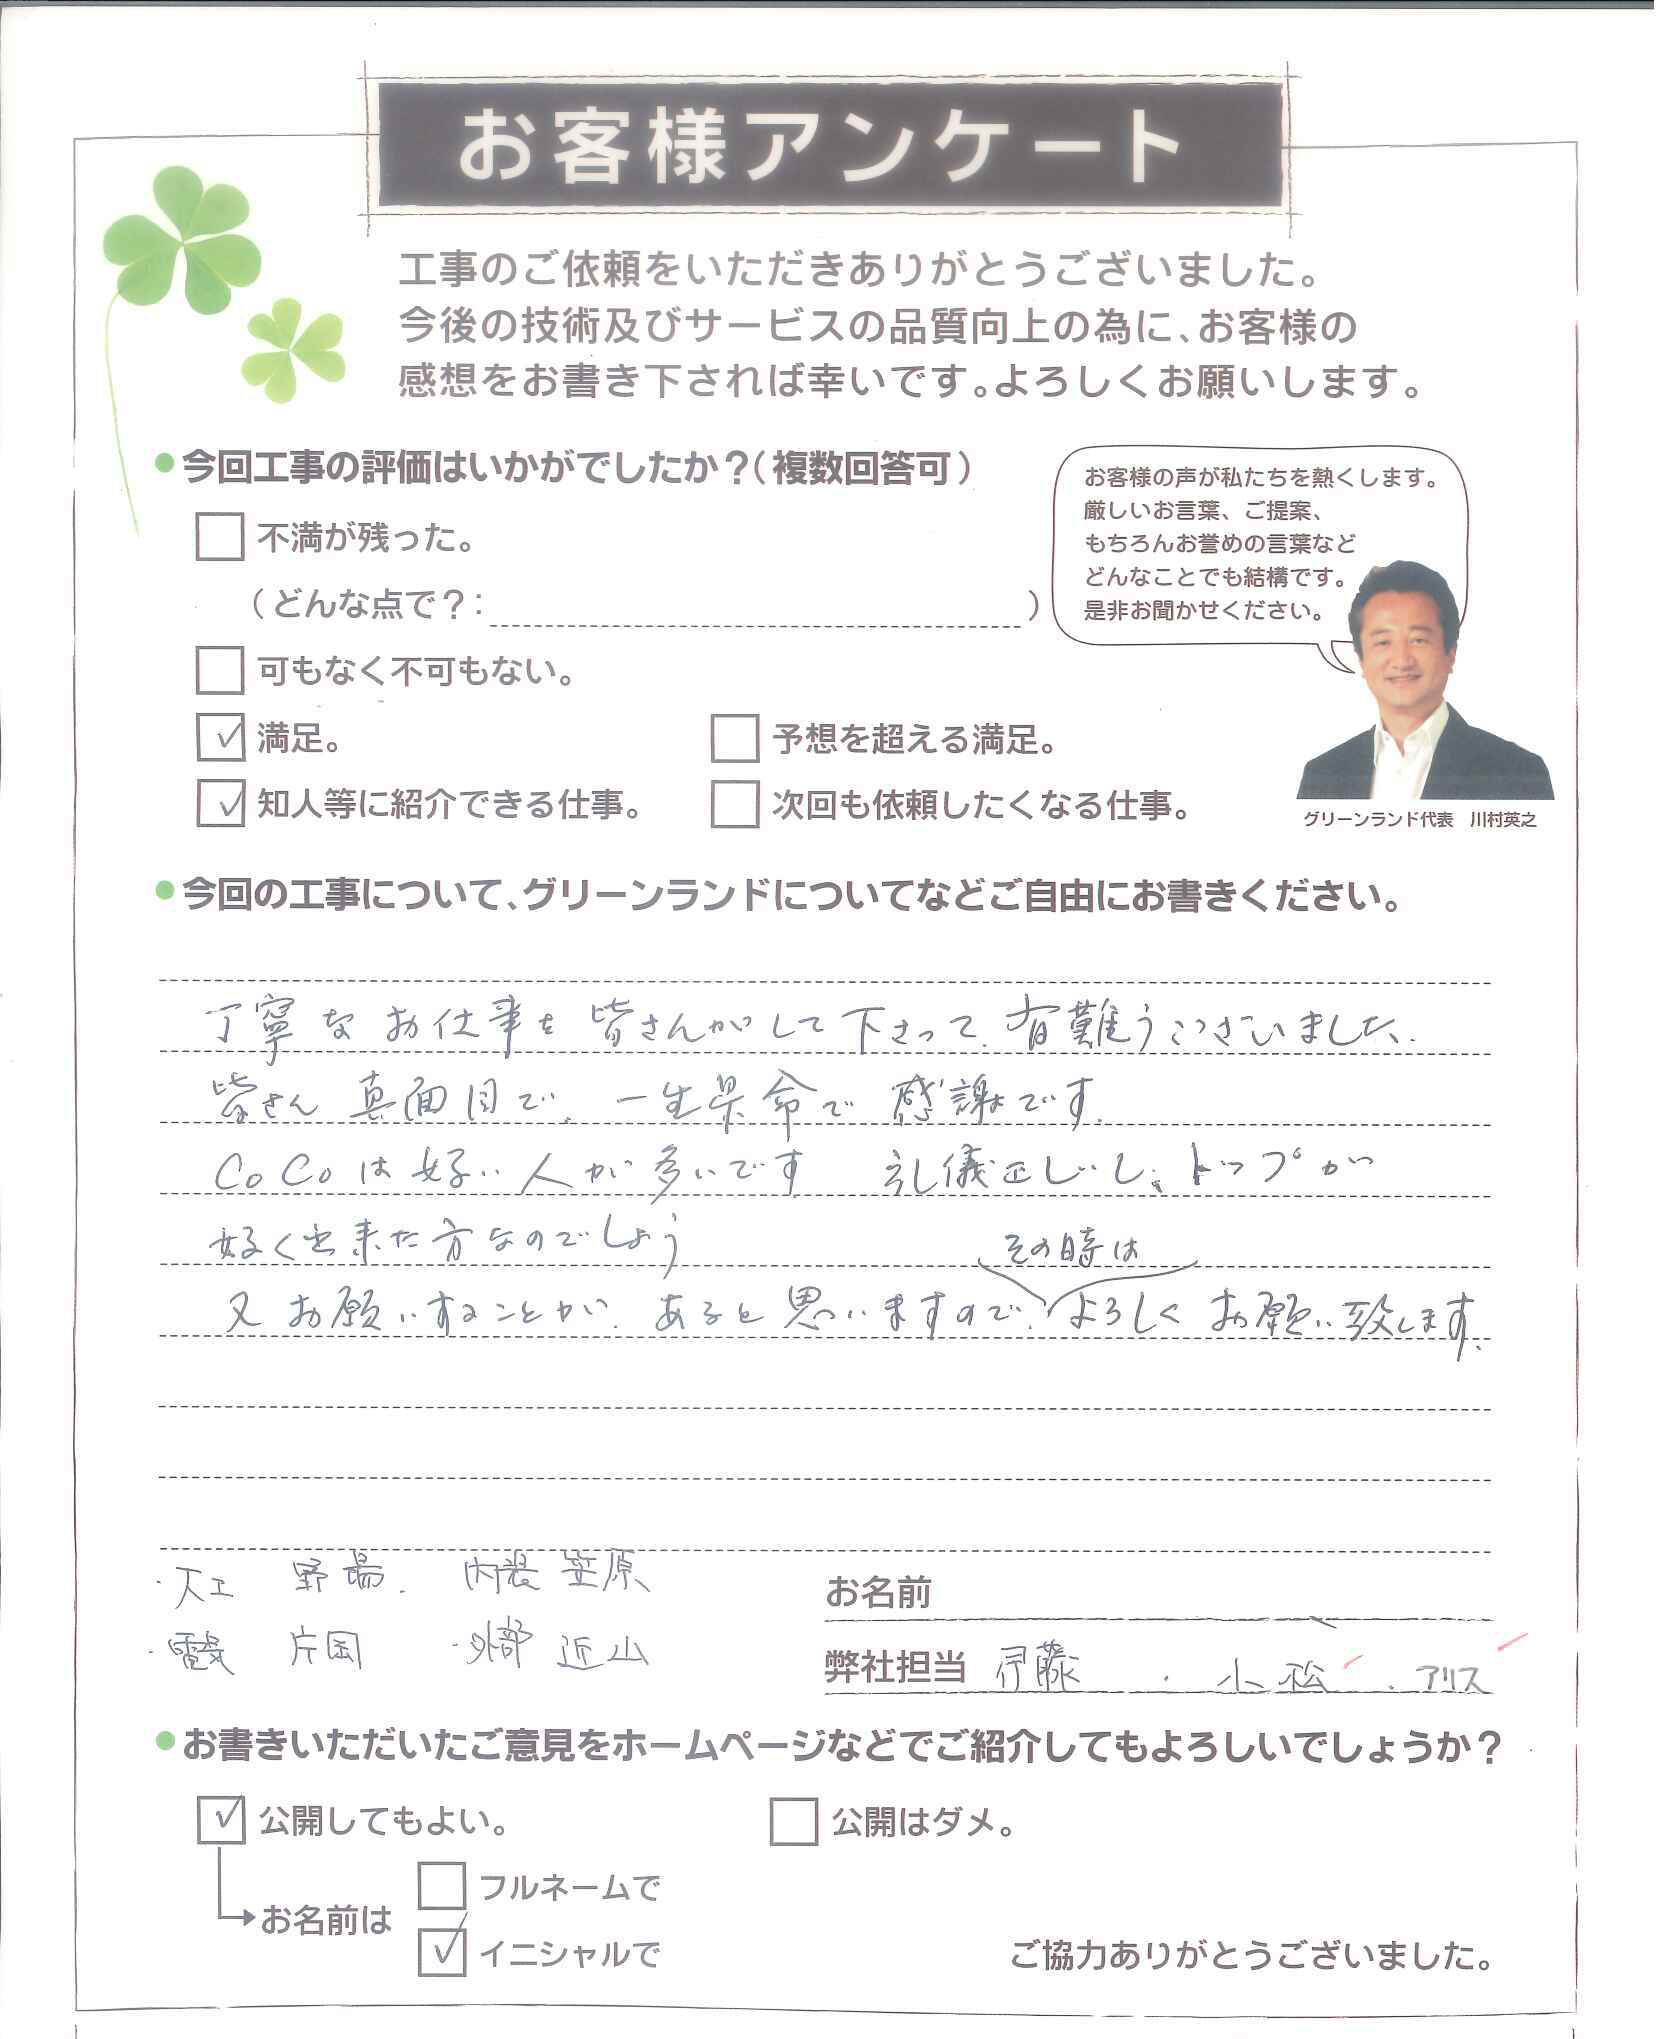 お客様アンケート
工事のご依頼をいただきありがとうございました。
今後の技術及びサービスの品質向上の為に、お客様の
感想をお書き下されば幸いです。よろしくお願いします。
●今回工事の評価はいかがでしたか?(複数回答可)
不満が残った。
(どんな点で?: )
可もなく不可もない。
✓満足。
予想を超える満足。
✓知人等に紹介できる仕事。
次回も依頼したくなる仕事。
お客様の声が私たちを熱くします。
厳しいお言葉、ご提案、
もちろんお誉めの言葉など
どんなことでも結構です。
是非お聞かせください。
グリーンランド代表 川村英之
●今回の工事について、グリーンランドについてなどご自由にお書きください。
丁寧なお仕事を皆さんがして下さって、有難うございました、
皆さん真面目で、一生県命で感謝です。
CoCoは好い人が多いです 礼儀正しいし、トップが
好く出来た方なのでしょう
その時は
又お願いすることが、あると思いますので、よろしくお願い致します。
・大工 野場.
内装 笠原
・電気 片岡
・外部 近山
お名前
弊社担当 伊藤 ・ 小松 . アリス
●お書きいただいたご意見をホームページなどでご紹介してもよろしいでしょうか?
✓公開してもよい。
公開はダメ。
お名前は
フルネームで
✓イニシャルで
ご協力ありがとうございました。